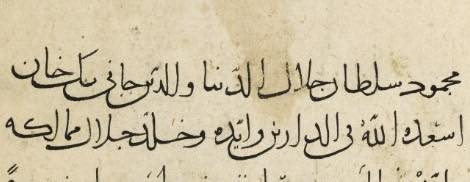 محمود سلطان جلال الدنيا والدين جانى بيك خان
اسعده الله فى الدارين وايده وخلد جلال ممالكه